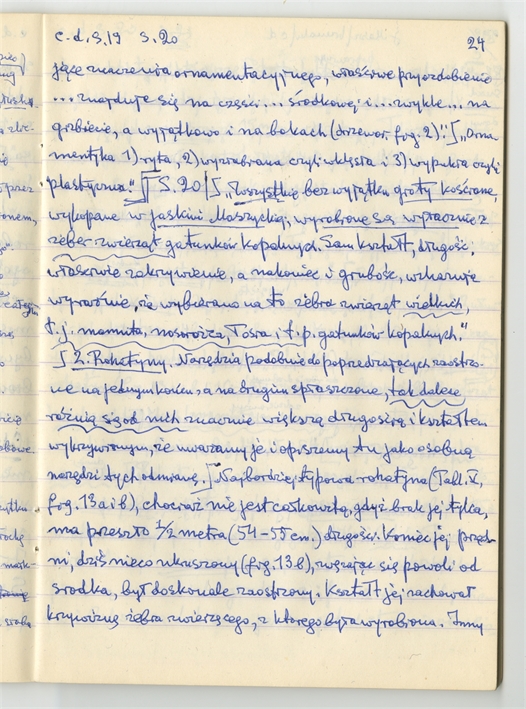 c.d.S.19 S.20 24
jące znaczenia ornamentacyjnego, właściwe przyozdobienie
... znajduje się na części ... środkowej i ... zwykle ... na
grzbiecie, a wyjątkowo i na bokach (drzewor. fig. 2)." ∫ „Orna-
mentyka 1) ryta, 2) wyrabiana czyli wklęsła i 3) wypukła czyli
plastyczna." ∫ S.20 | ∫ „Wszystkie bez wyjątku groty kościane,
wykopane w jaskini Maszyckiej, wyrobione są wyłącznie z
żeber zwierząt gatunków kopalnych. Sam kształt, długość,
właściwe zakrzywienie, a nakoniec i grubość, wskazuje
wyraźnie, że wybierano na to żebra zwierząt wielkich,
t.j. mamuta, nosorożca, łosia i t.p. gatunków kopalnych."
∫ 2. Rohatyny. Narzędzia podobnie do poprzedzających zaostrzo-
ne na jednym końcu, a na drugim spłaszczone, tak dalece
różnią się od nich znacznie większą długością i kształtem
wykrzywionym, że uważamy je i opiszemy tu jako osobną
narzędzi tych odmianę. ∫ Najbardziej typowa rohatyna (Tabl. V,
fig. 13a i b), chociaż nie jest całkowitą, gdyż brak jej tylca,
ma przeszło 1/2 metra (54-55 cm.) długości. Koniec jej przed-
ni, dziś nieco ukruszony (fig. 13 b), zwężając się powoli od
środka, był doskonale zaostrzony. Kształt jej zachował
krzywiznę żebra zwierzęcego, z którego była wyrobiona. Inny